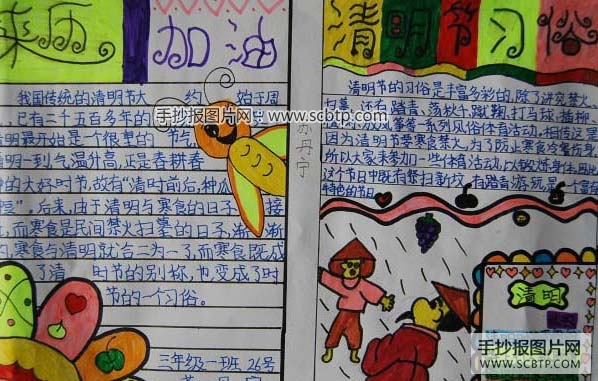 来历 加油
我国传统的清明节大 约 始于周
,已有二千五百多年的
清明最开始是一个很重的 节气
清明一到气温升高,正是春耕春
的大好时节,故有“清明前后,种瓜
”。后来,由于清明与寒食的日子 接
,而寒食是民间禁火扫墓的日子,渐渐
寒食与清明就合二为一了,而寒食既成
了清 时节的别称,也变成了时
节的一个习俗。
三年级一班 26号
苏丹宁
苏丹宁
清明节习俗
清明节的习俗是丰富多彩的,除了讲究禁火、
扫墓,还有踏青、荡秋千、蹴鞠、打马球、插柳
等一系列风俗体育活动。相传这是
因为清明节要寒食禁火,为了防止寒食冷餐伤身,
所以大家来参加一些体育活动,以锻炼身体。因此
这个节日中既有祭扫新坟 有踏青游玩 是一个富有
特色的节日。
清明
手抄报图片网
www.scbtp.com
手抄报图片网
WWW.SCBTP.COM